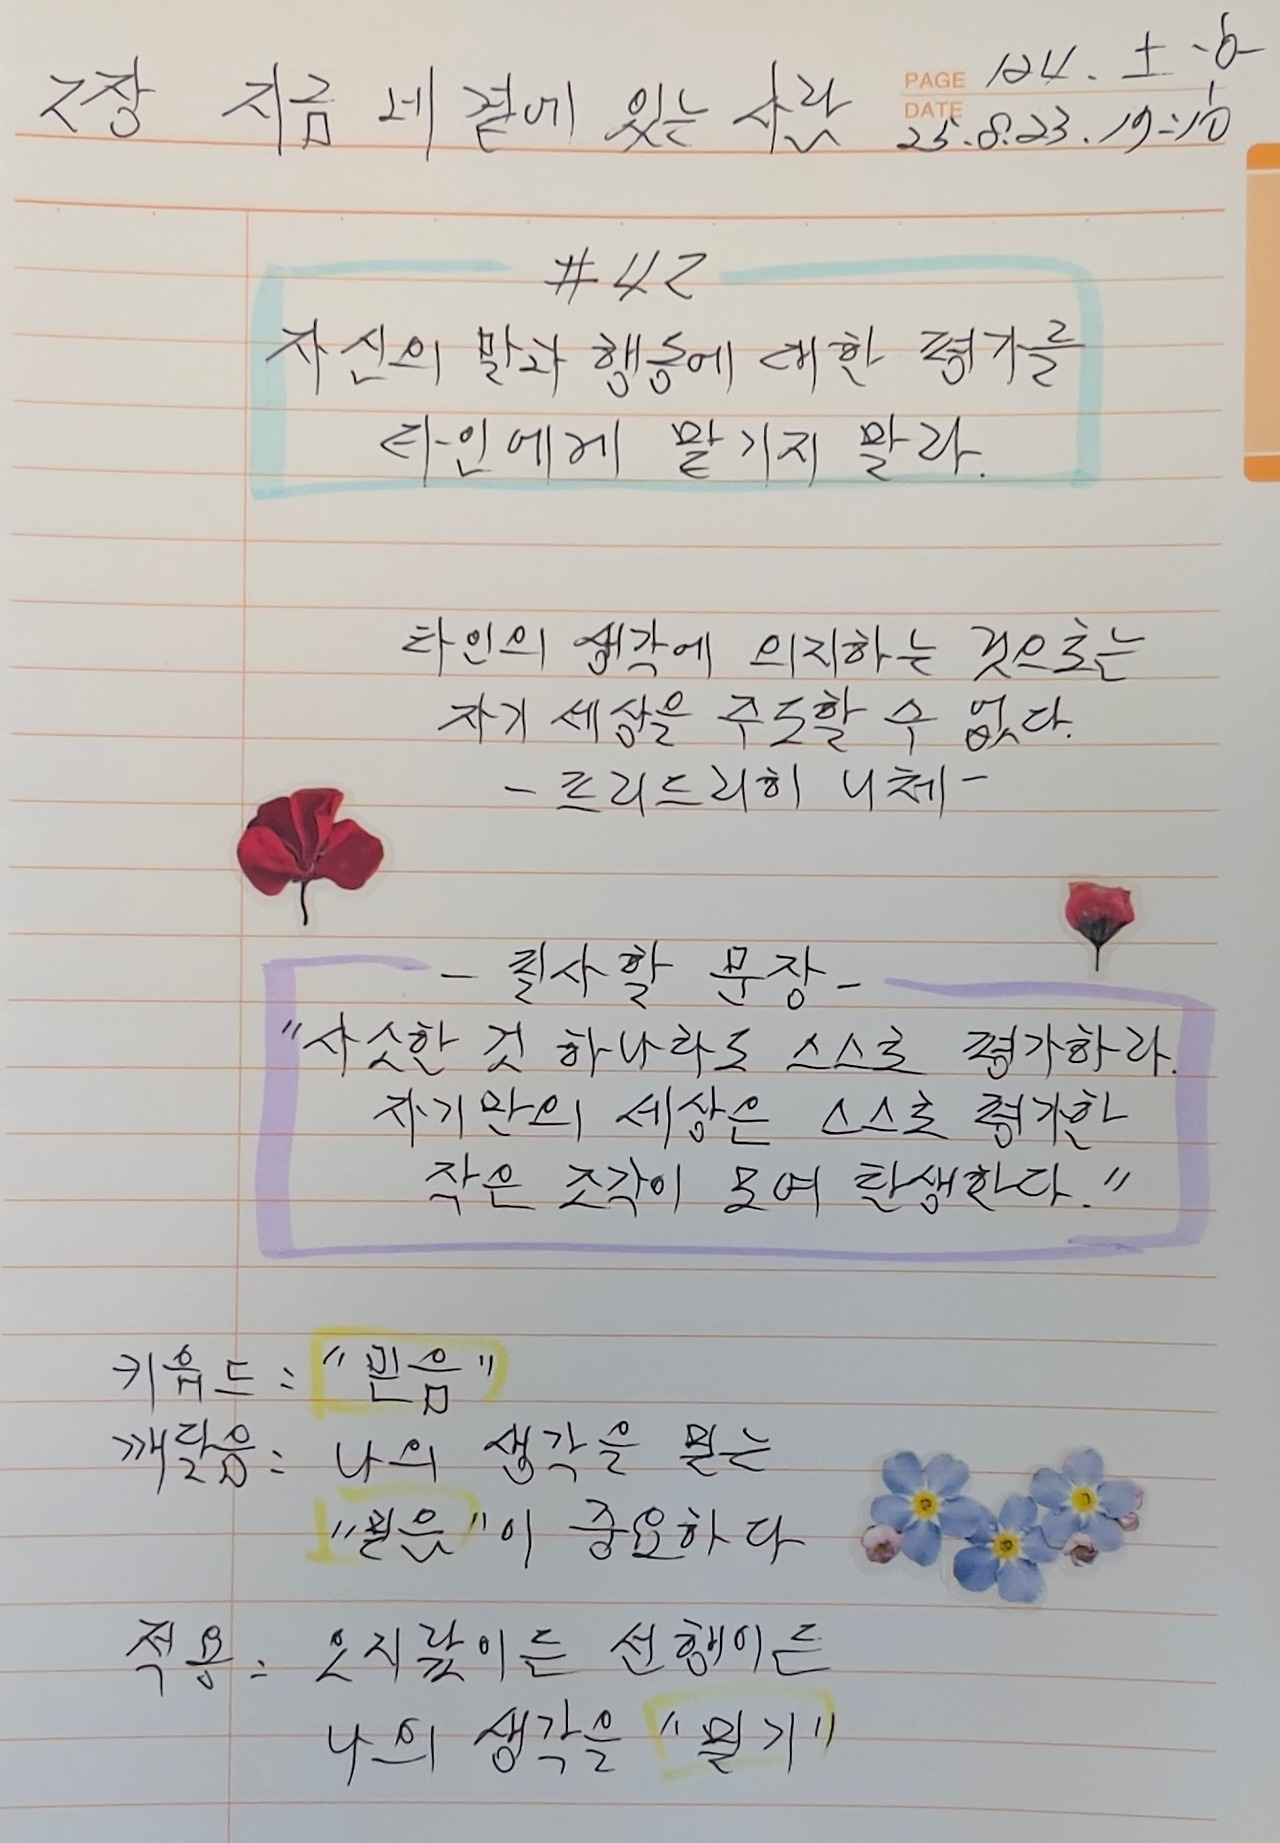 2장 지금 네 곁에 있는 사람
PAGE 124. 土 -6-
DATE 25.8.23. 19:10
#42
자신의 말과 행동에 대한 평가를
타인에게 맡기지 말라.
타인의 생각에 의지하는 것으로는
자기 세상을 주도할 수 없다.
- 프리드리히 니체 -
- 필사할 문장 -
"사소한 것 하나라도 스스로 평가하라.
자기만의 세상은 스스로 평가한
작은 조각이 모여 탄생한다."
키워드: "믿음"
깨달음: 나의 생각을 믿는
"믿음"이 중요하다
적용: 오지랖이든 선행이든
나의 생각을 "믿기"